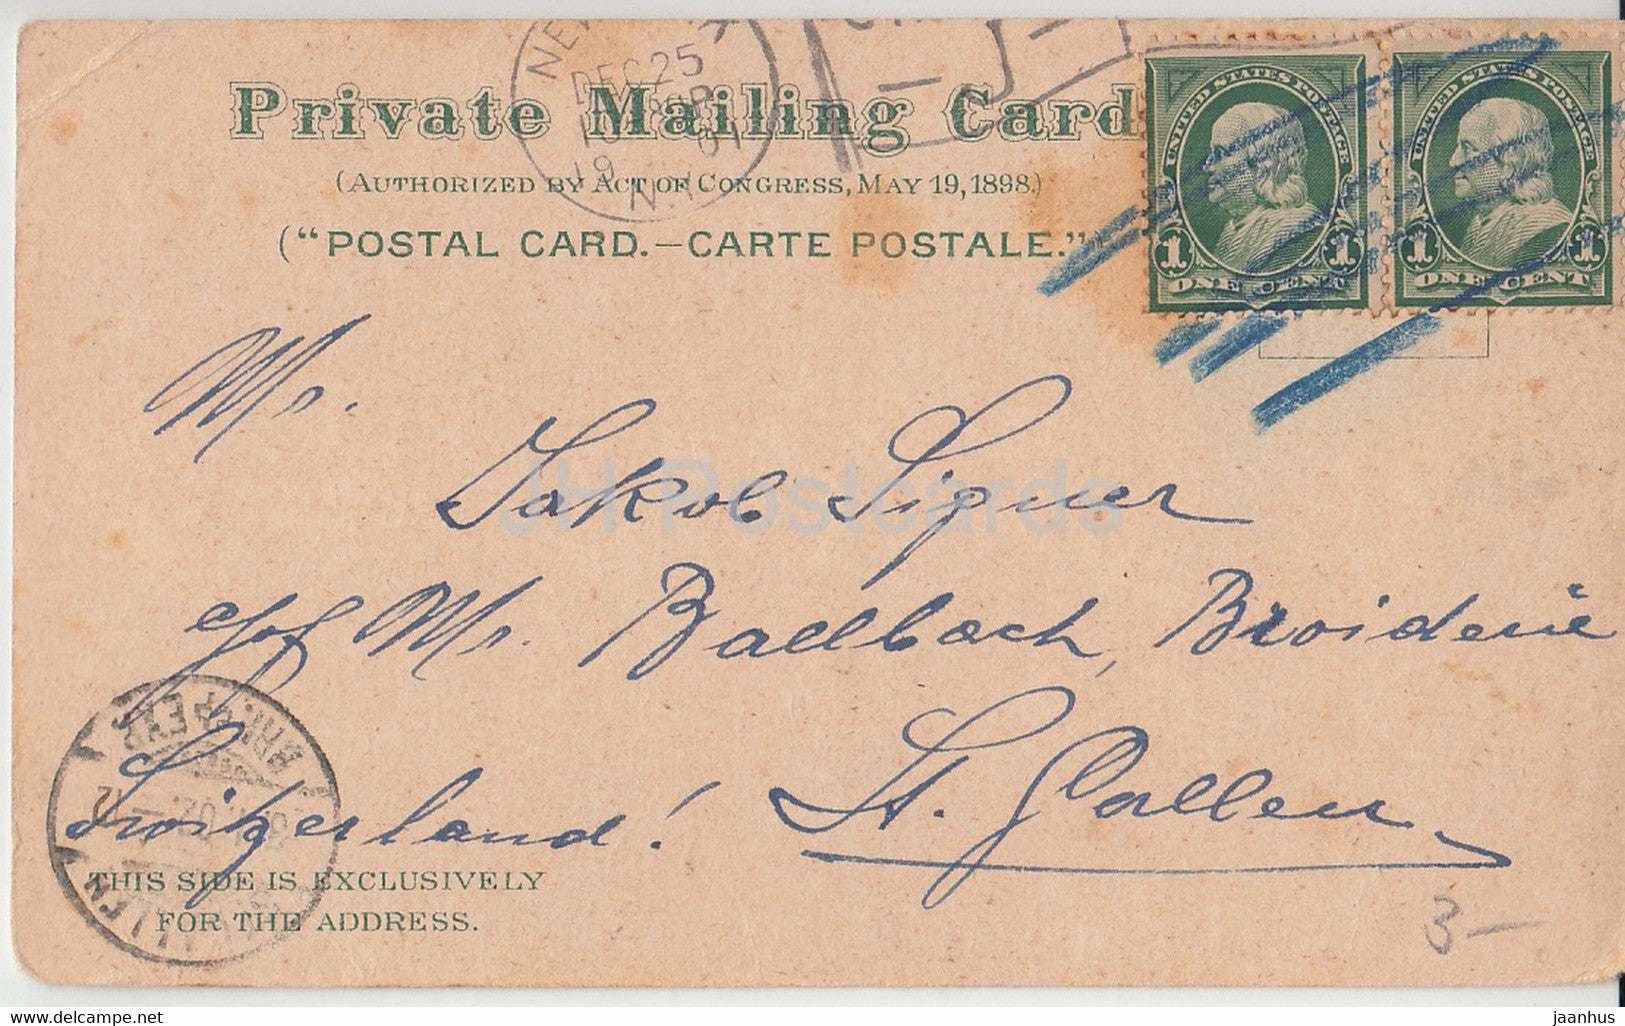 Private Mailing Card
(AUTHORIZED BY ACT OF CONGRESS, MAY 19, 1898.)
("POSTAL CARD.—CARTE POSTALE."
NEW
DEC 25
19 01
N.Y.
UNITED STATES POSTAGE
1 1
ONE CENT
UNITED STATES POSTAGE
1 1
ONE CENT
Mr.
Jakob Signer
c/o Mr. Baellbach, Broiderie
St. Gallen
Switzerland!
JH Postcards
THIS SIDE IS EXCLUSIVELY
FOR THE ADDRESS.
3 —
delcampe.net
jaanhus